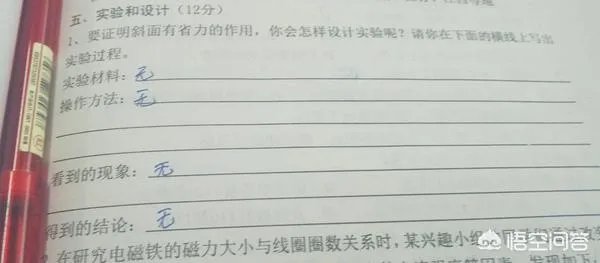 五、实验和设计(12分)
1、要证明斜面有省力的作用，你会怎样设计实验呢？请你在下面的横线上写出
实验过程。
实验材料：无
操作方法：无
看到的现象：无
得到的结论：无
在研究电磁铁的磁力大小与线圈圈数关系时，某兴趣小组
悟空问答